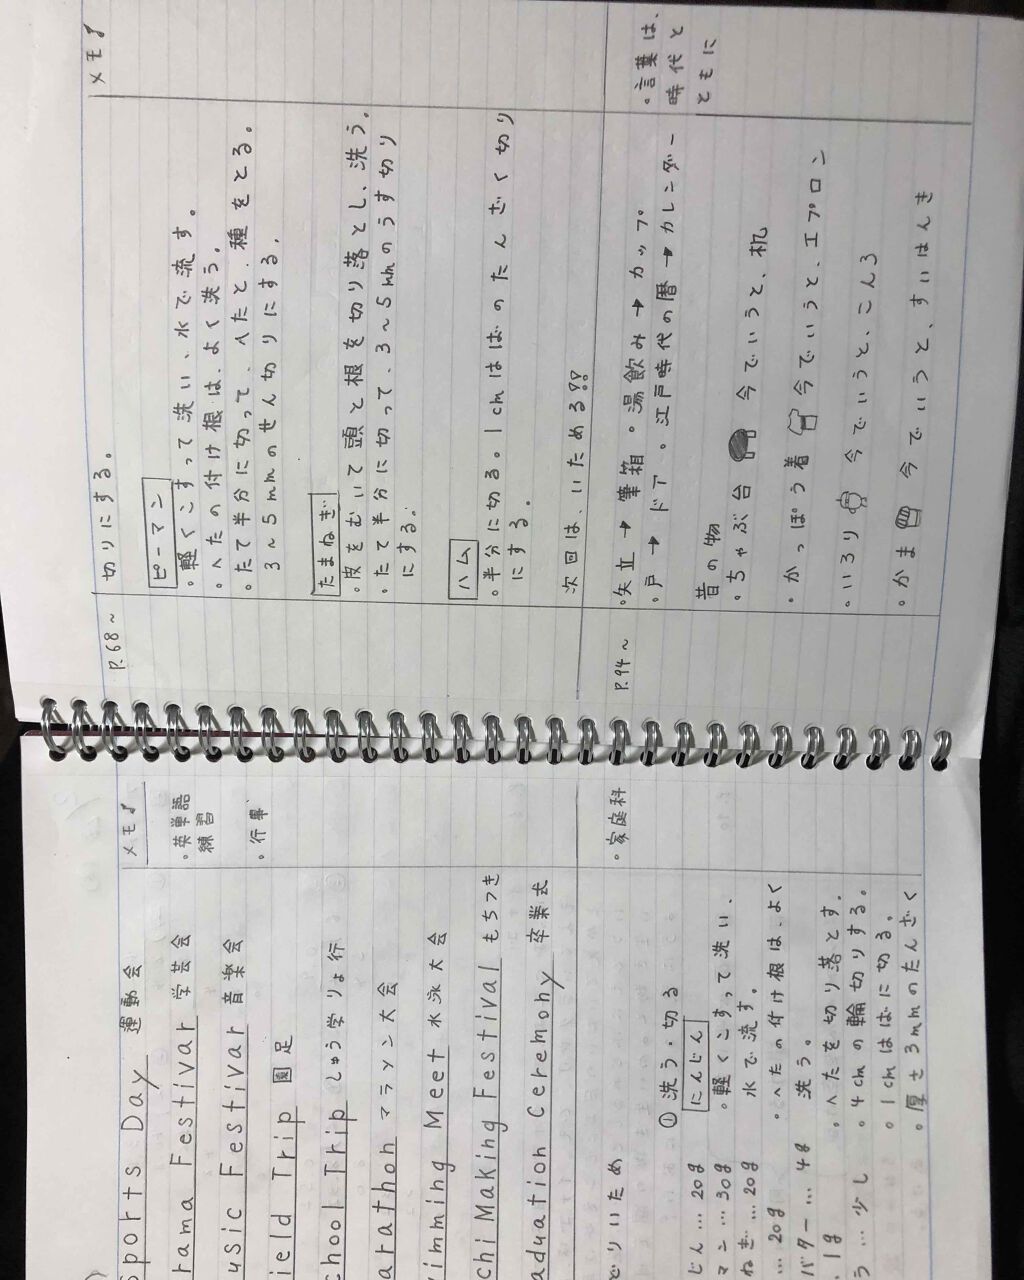 ports Day 運動会
rama Festival 学芸会
usic Festival 音楽会
ield Trip 園足
chool Trip しゅう学りょ行
arathon マラソン大会
imming Meet 水泳大会
chi Making Festival もちつき
aduation Ceremony 卒業式
メモ♪
・英単語
練習
・行事
どりいため
じん…20g
マン…30g
ねぎ…20g
…20g
バター…4g
1g
う…少し
①洗う・切る
にんじん
・軽くこすって洗い、
水で流す。
・へたの付け根は、よく
洗う。
・へたを切り落とす。
・4cmの輪切りする。
・1cmはばに切る。
・厚さ3mmのたんざく
・家庭科
P.68~
切りにする。
ピーマン
・軽くこすって洗い、水で流す。
・へたの付け根は、よく洗う。
・たて半分に切って、へたと、種をとる。
3~5mmのせん切りにする。
たまねぎ
・皮をむいて頭と根を切り落とし、洗う。
・たて半分に切って、3~5mmのうす切り
にする。
ハム
・半分に切る。1cmはばのたんざく切り
にする。
次回は、いためる!!
メモ♪
P.94~
・矢立→筆箱・湯飲み→カップ
・戸→ドア・江戸時代の暦→カレンダー
昔の物
・ちゃぶ台 今でいうと、机
・かっぽう着 今でいうと、エプロン
・いろり 今でいうと、こんろ
・かま 今でいうと、すいはんき
・言葉は、
時代と
ともに